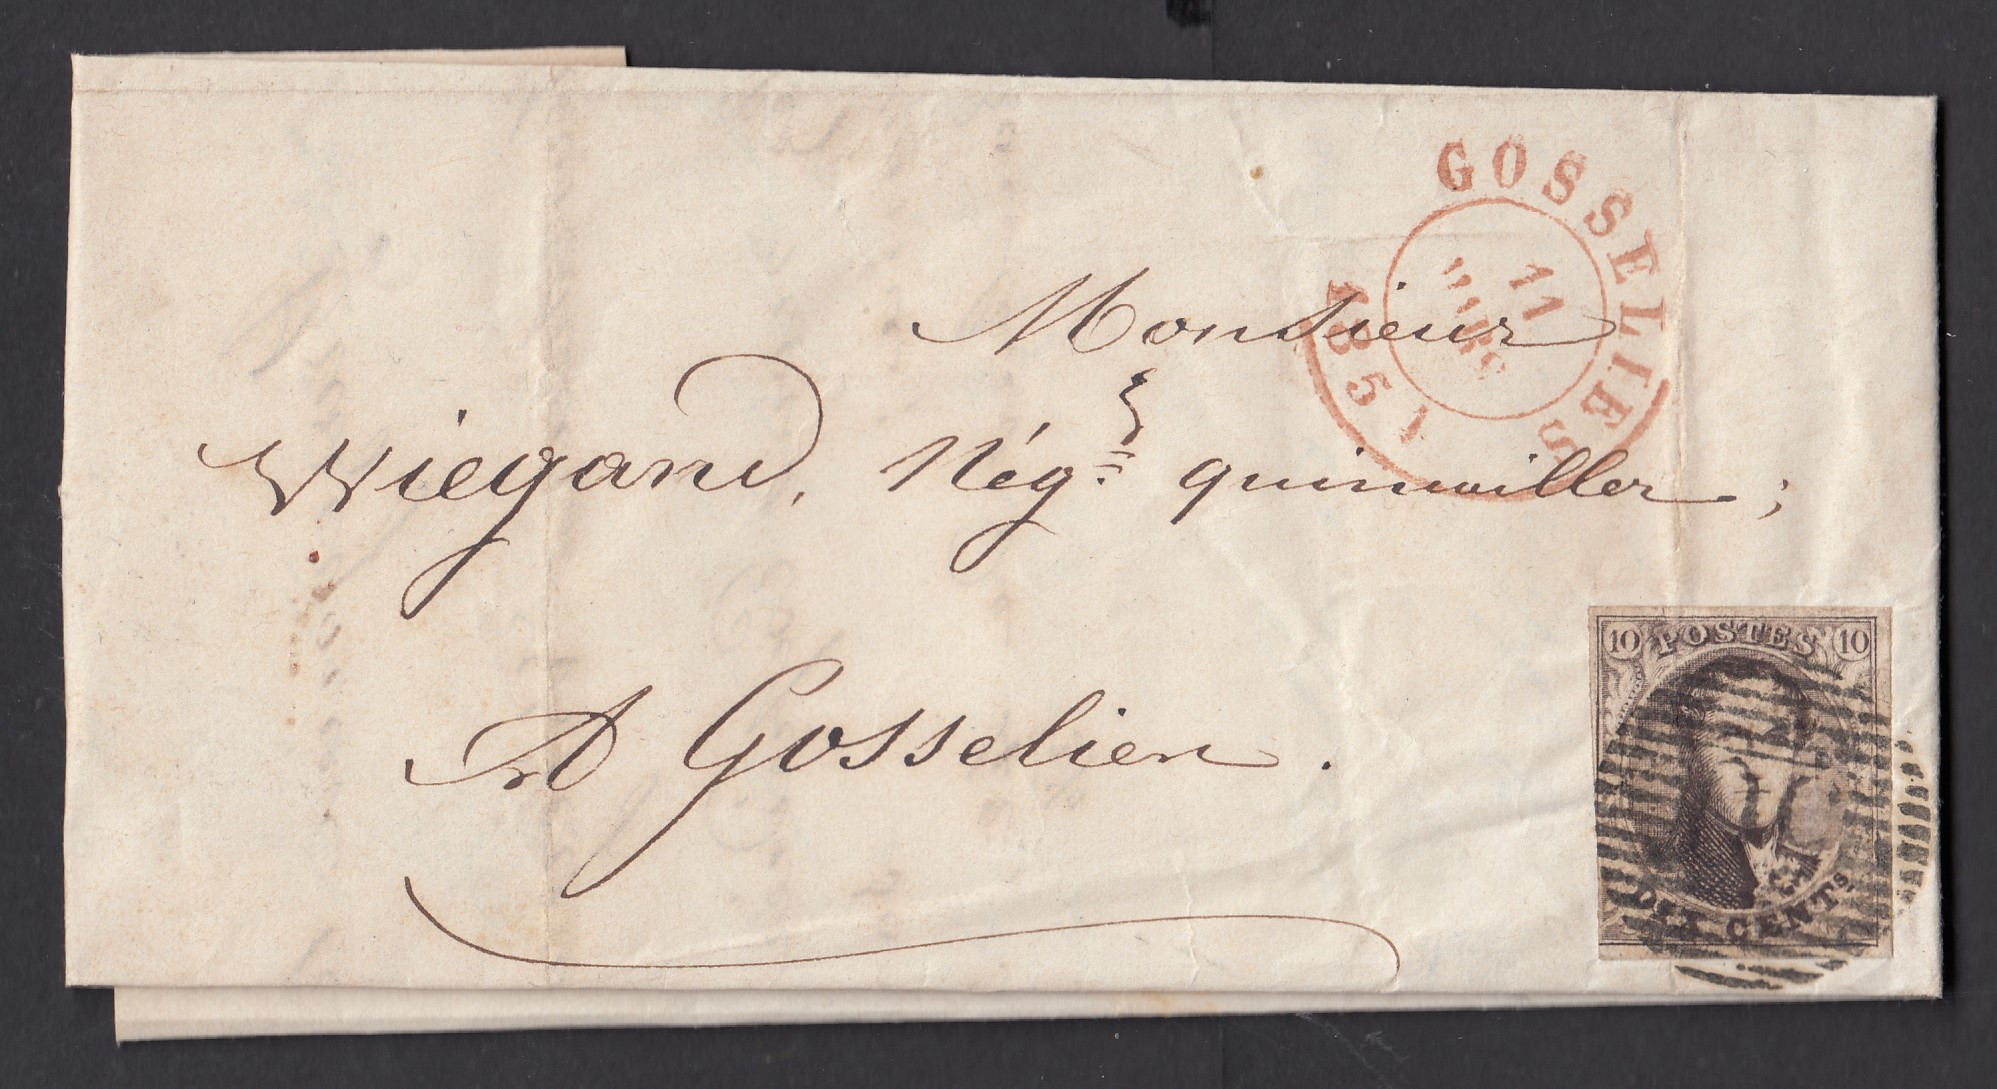 GOSSELIES
11
MARS
1851
Monsieur
Wiegand, Nég.t quinwiller ;
A Gosselien .
10 POSTES 10
DIX CENTS.